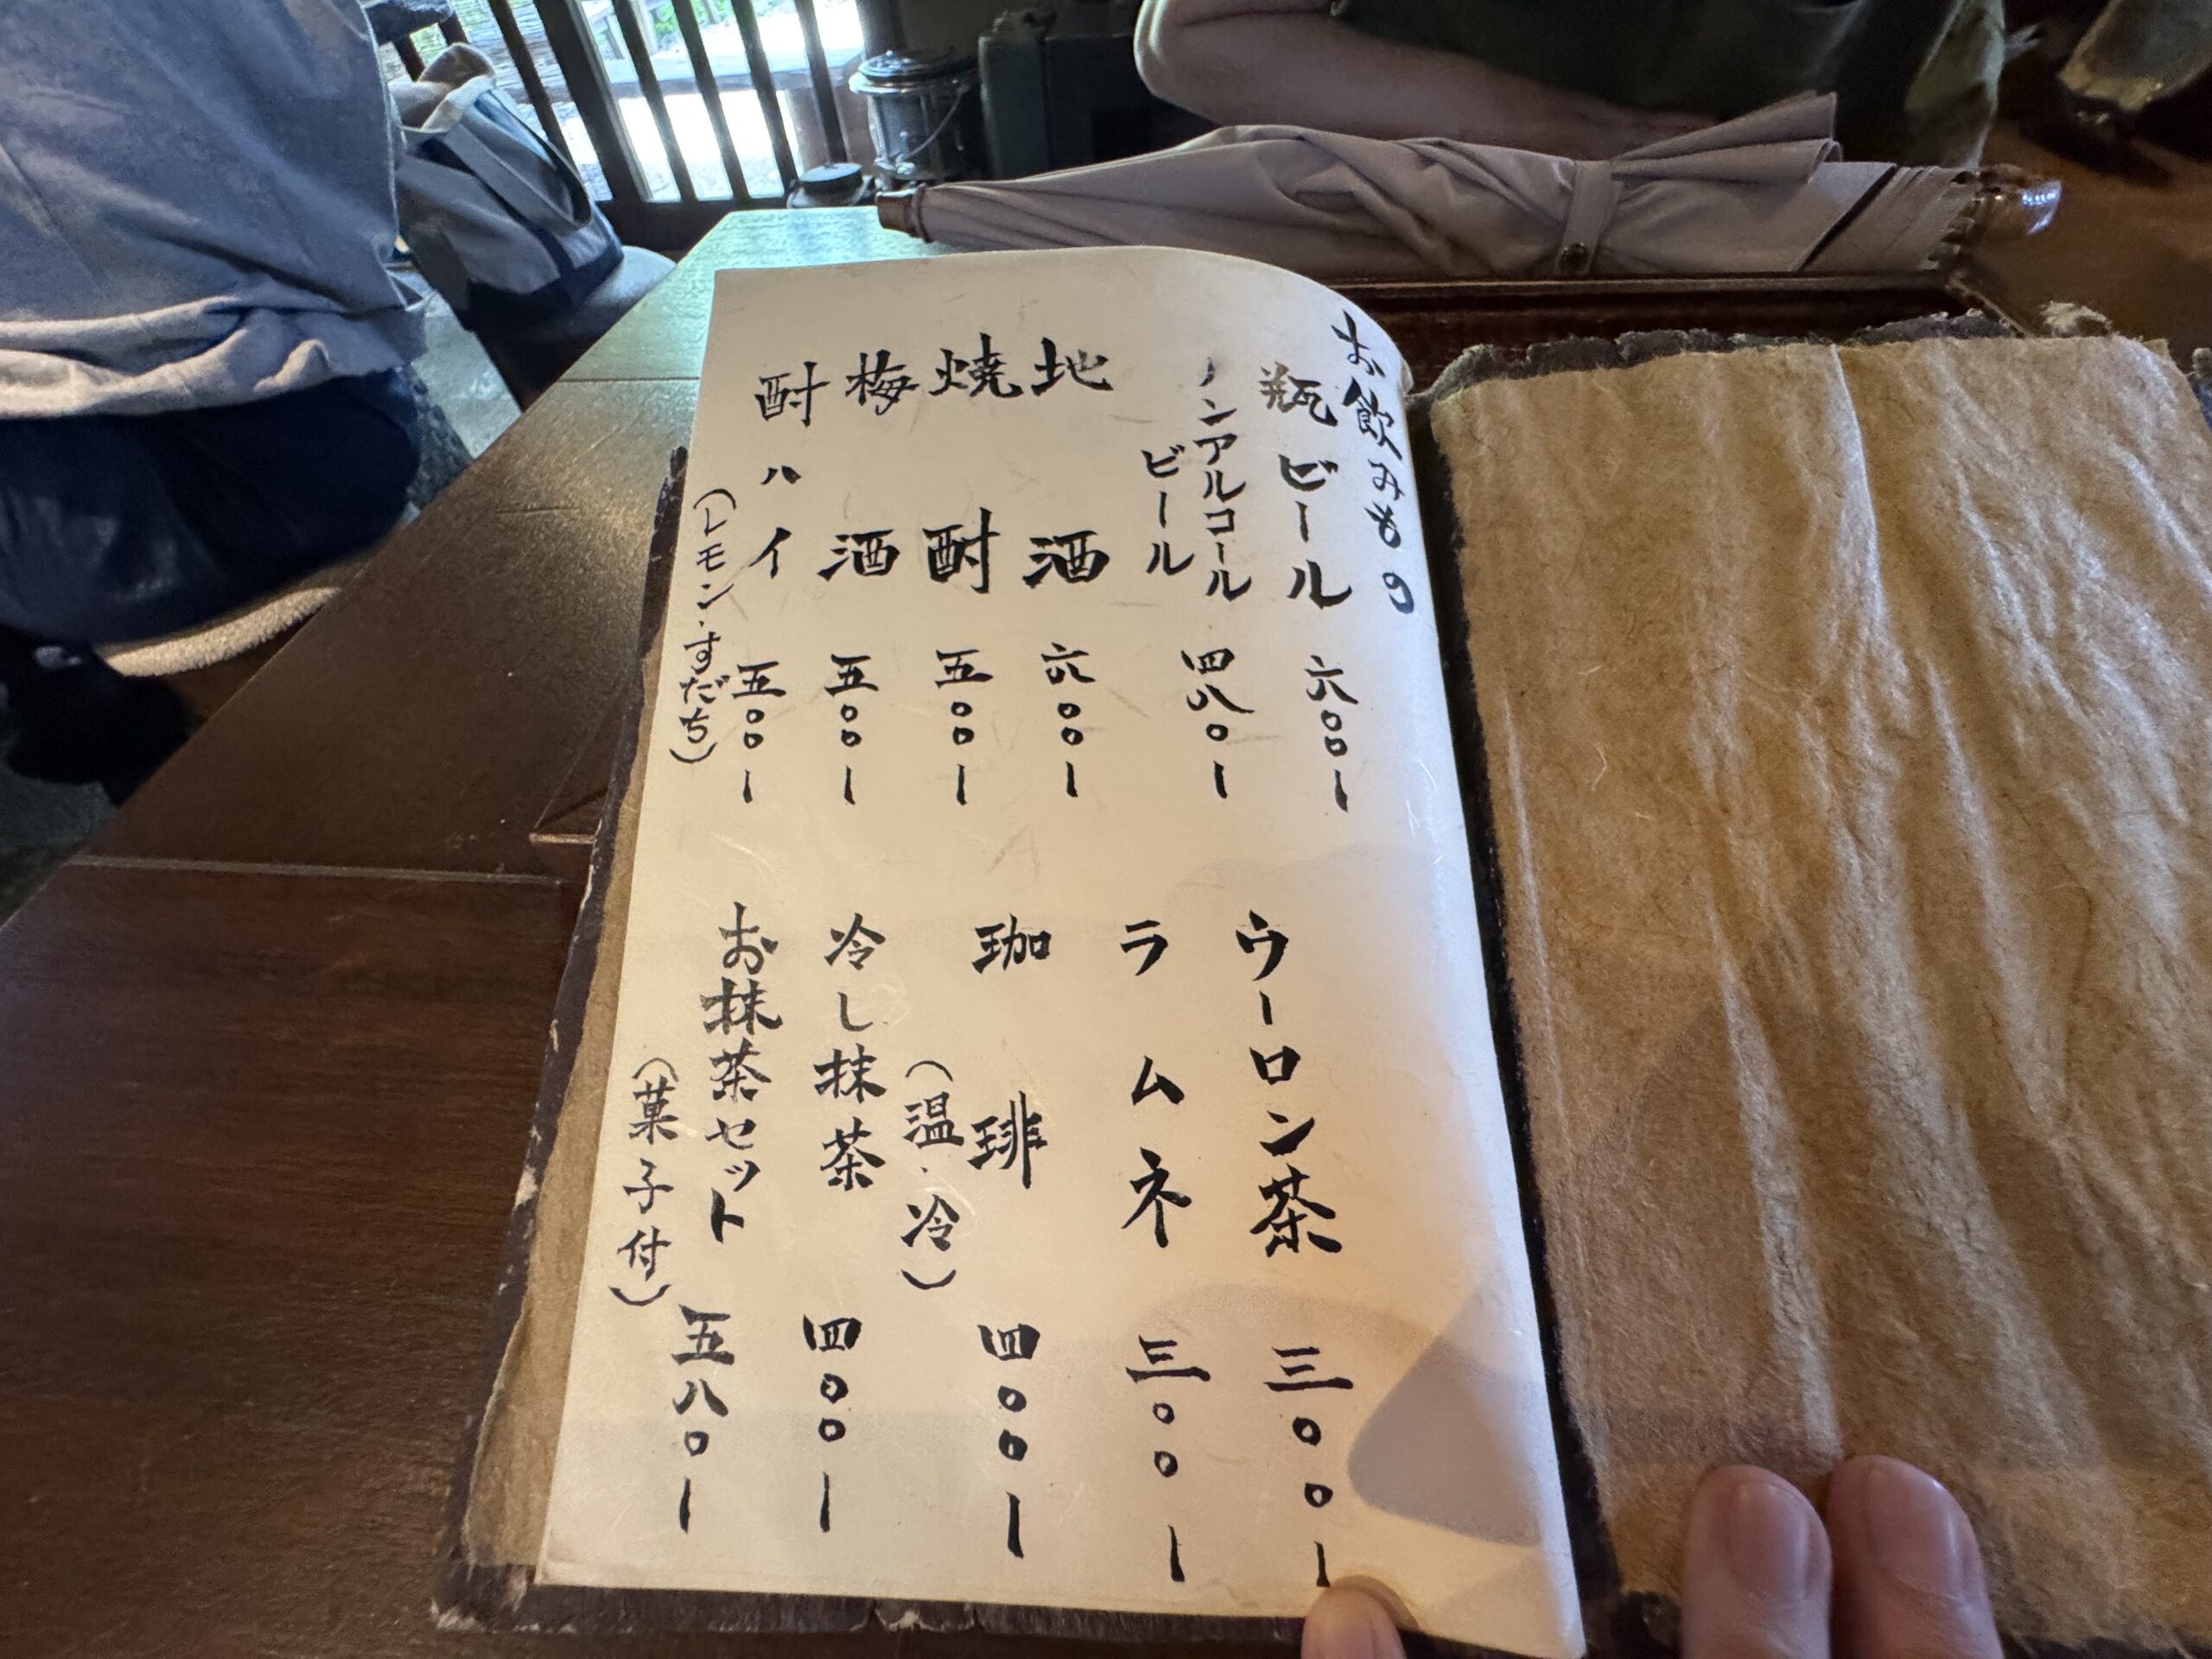 お飲みもの
瓶ビール 六〇〇ー
ノンアルコール
ビール 四八〇ー
地酒 六〇〇ー
焼酎 五〇〇ー
梅酒 五〇〇ー
酎ハイ 五〇〇ー
(レモン・すだち)
ウーロン茶 三〇〇ー
ラムネ 三〇〇ー
珈琲 四〇〇ー
(温・冷)
冷し抹茶 四〇〇ー
お抹茶セット 五八〇ー
(菓子付)